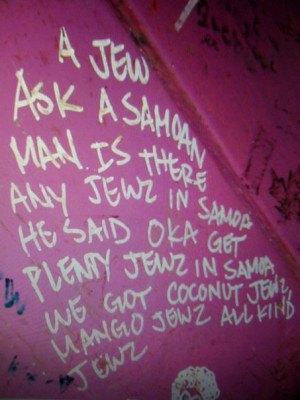 A JEW
ASK A SAMOAN
MAN. IS THERE
ANY JEWZ IN SAMOA
HE SAID OKA GET
PLENDY JEWZ IN SAMOA,
WE GOT COCONUT JEWZ,
MANGO JEWZ ALL KIND
JEWZ